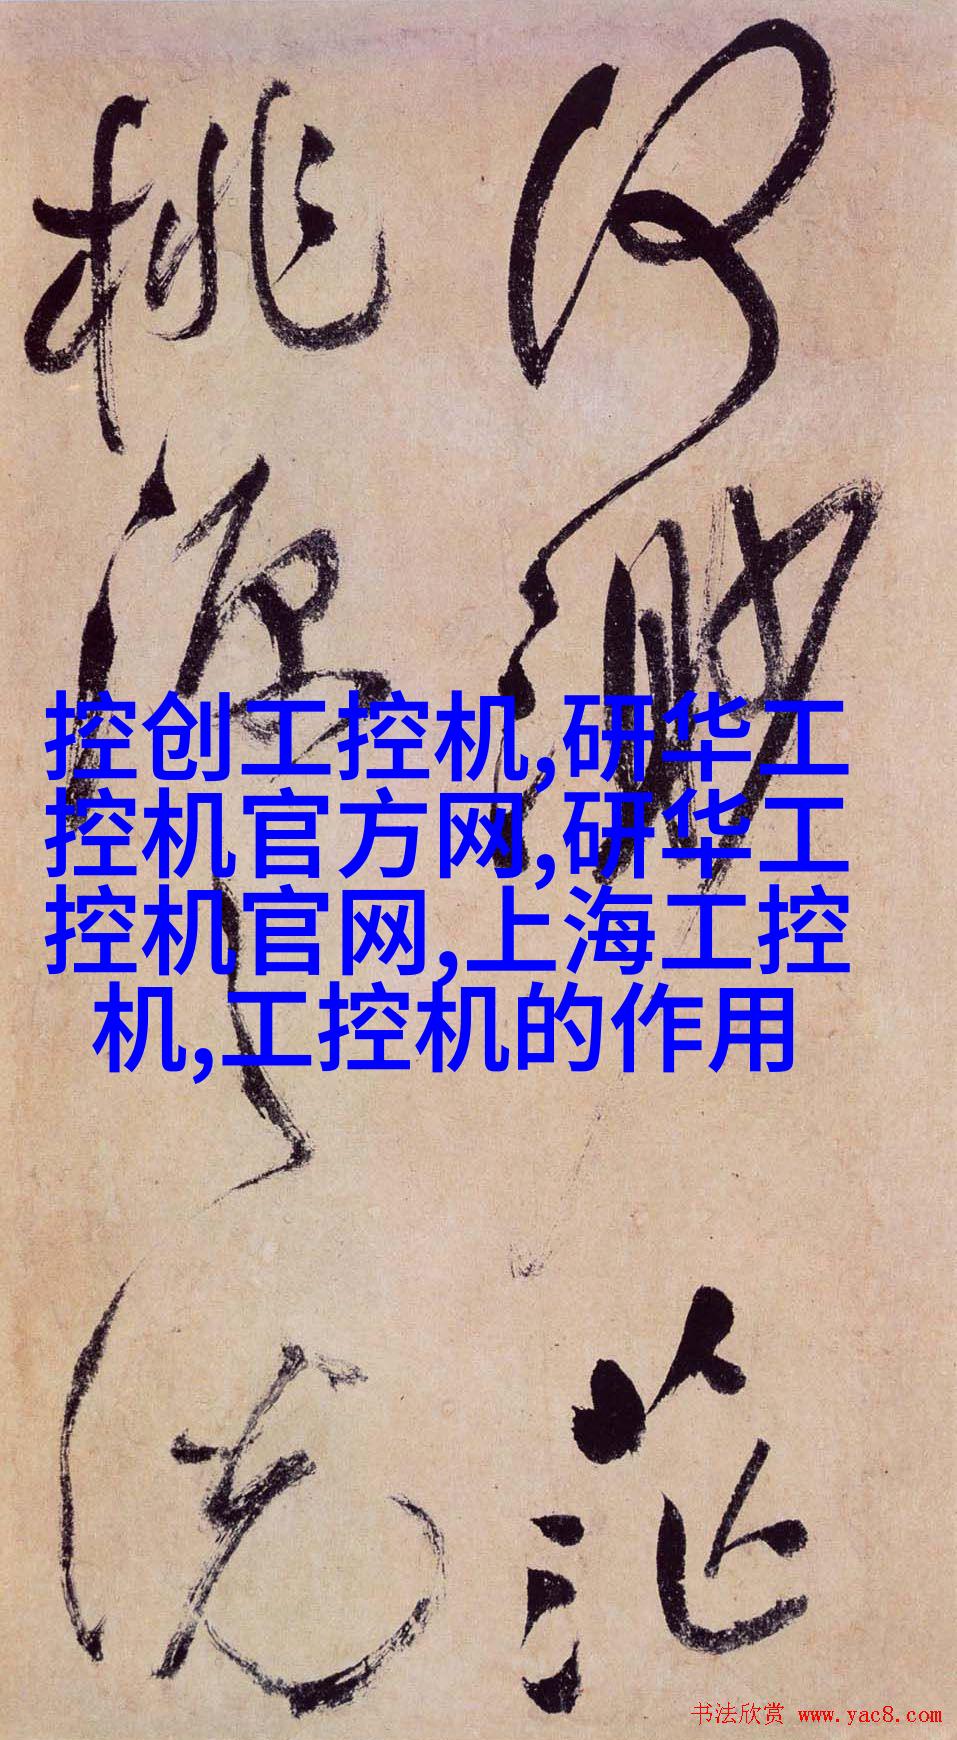 何渺茫
桃源之說
控创工控机,研华工
控机官方网,研华工
控机官网,上海工控
机,工控机的作用
书法欣赏 www.yac8.com